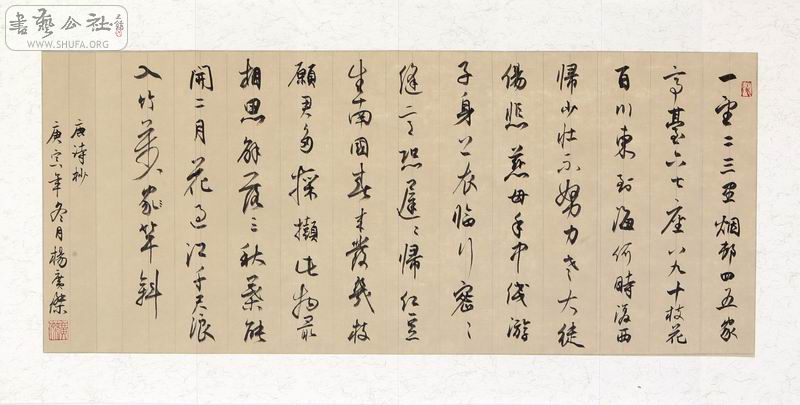 書藝公社
WWW.SHUFA.ORG
一望二三里烟邨四五家
亭臺六七座八九十枝花
百川東到海何時復西
歸少壯不努力老大徒
傷悲慈母手中线游
子身上衣臨行密々
縫意恐遲々歸红豆
生南國春来發幾枝
願君多採擷此物最
相思解落三秋葉能
開二月花過江千尺浪
入竹萬家竿斜
唐诗抄
庚寅年冬月楊傑